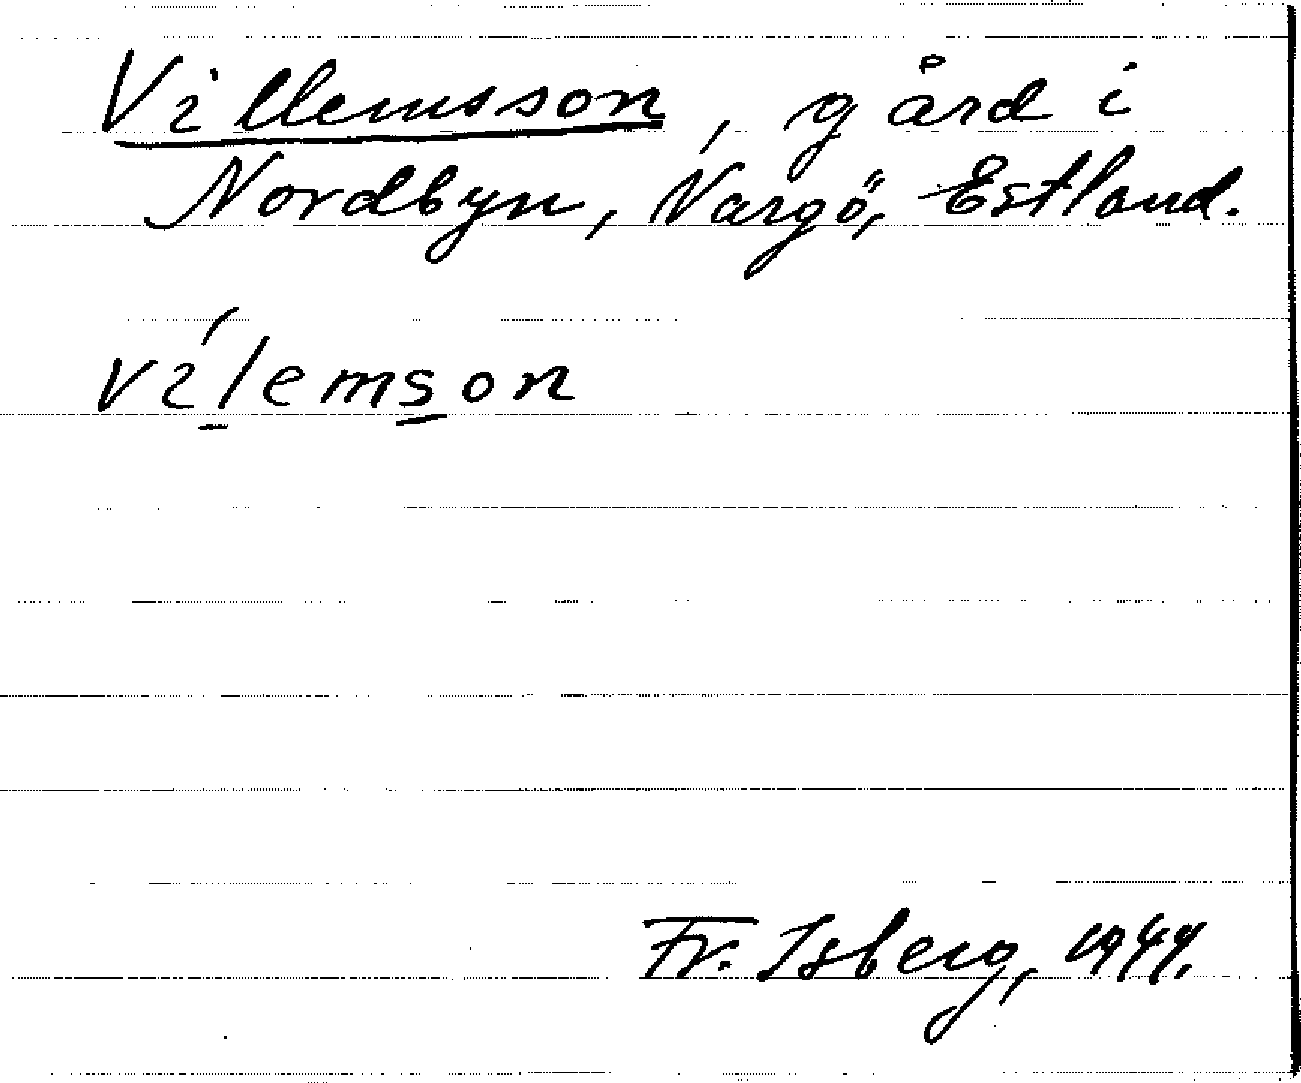 Villemsson, gård i
Nordbyn, Nargö, Estland.
vílemson
Fr. Isberg, 1944.